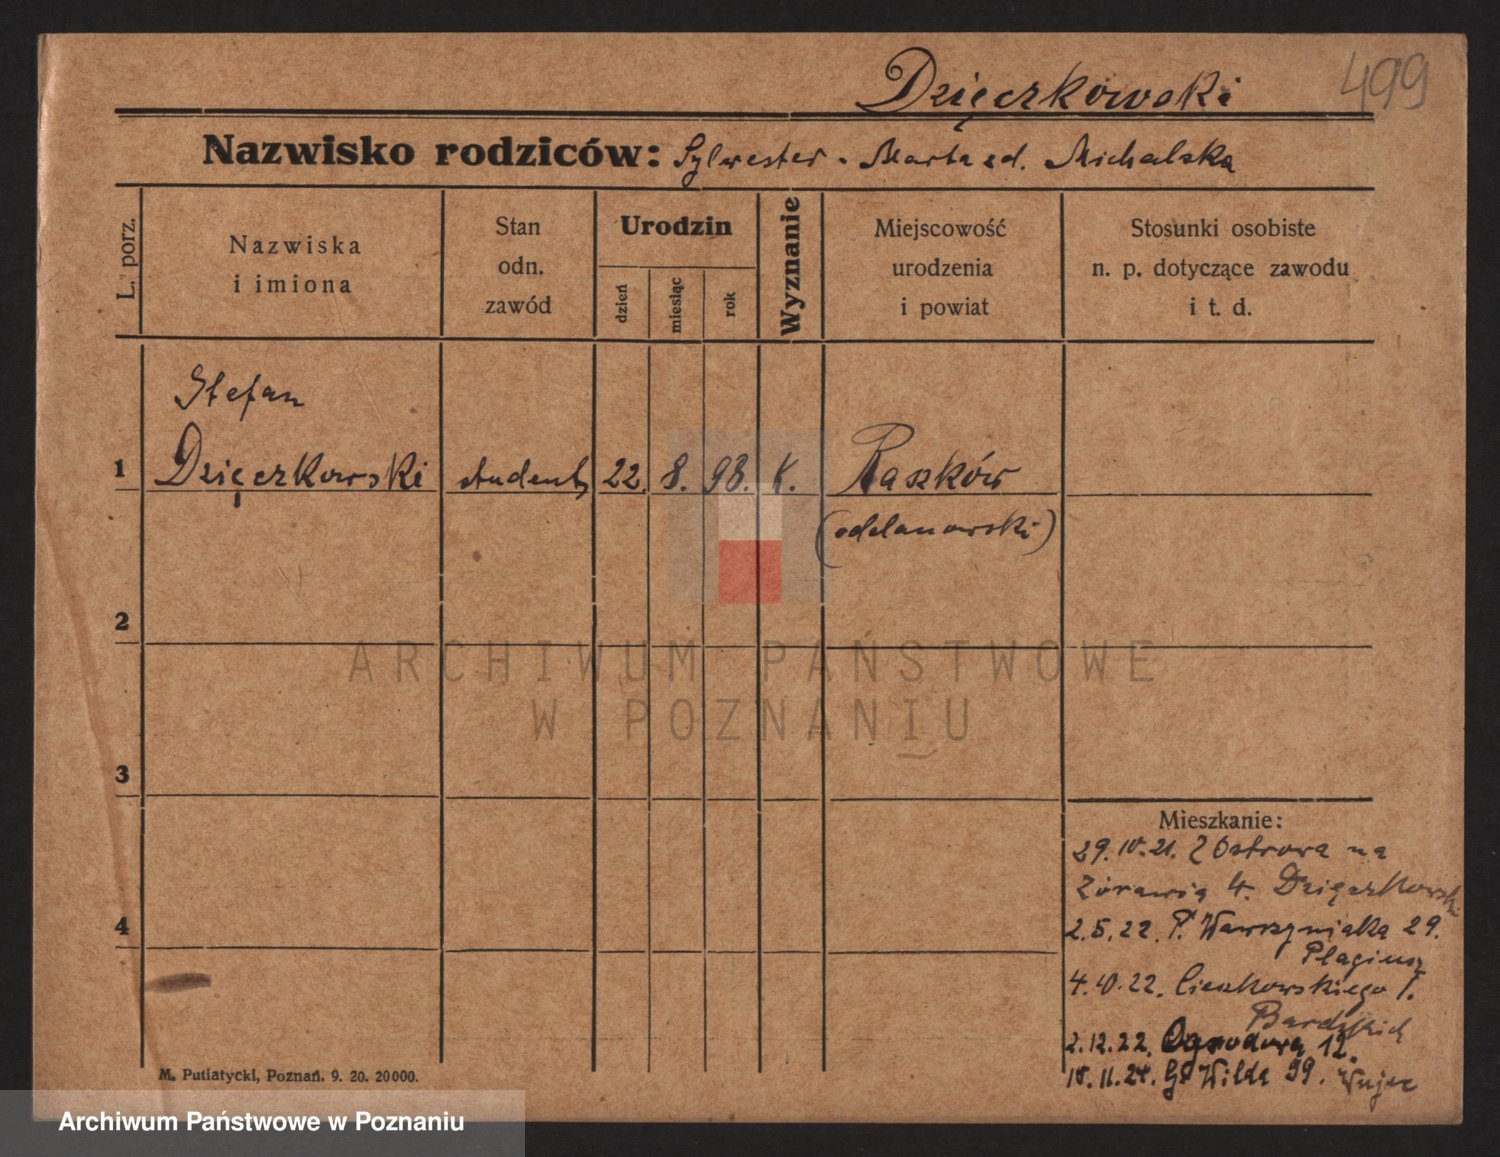 Dzięczkowski 499
Nazwisko rodziców: Sylwester - Marta zd. Michalska
L. porz.
Nazwiska
i imiona
Stan
odn.
zawód
Urodzin
dzień
miesiąc
rok
Wyznanie
Miejscowość
urodzenia
i powiat
Stosunki osobiste
n. p. dotyczące zawodu
i t. d.
Stefan
1 Dzięczkowski student 22. 8. 98. k. Raszków
(odolanowski)
2
ARCHIWUM PAŃSTWOWE
W POZNANIU
3
Mieszkanie:
29.10.21. Z Ostrowa na
Żórawią 4. Dzięczkowski
4
2.5.22. P. Wawrzyniaka 29.
Plagiusz
4.10.22. Cieszkowskiego 1.
2.12.22. Ogrodowa 12.
10.11.24. Gr Wilda 99. Wujec
M. Putiatycki, Poznań. 9. 20. 20000.
Archiwum Państwowe w Poznaniu